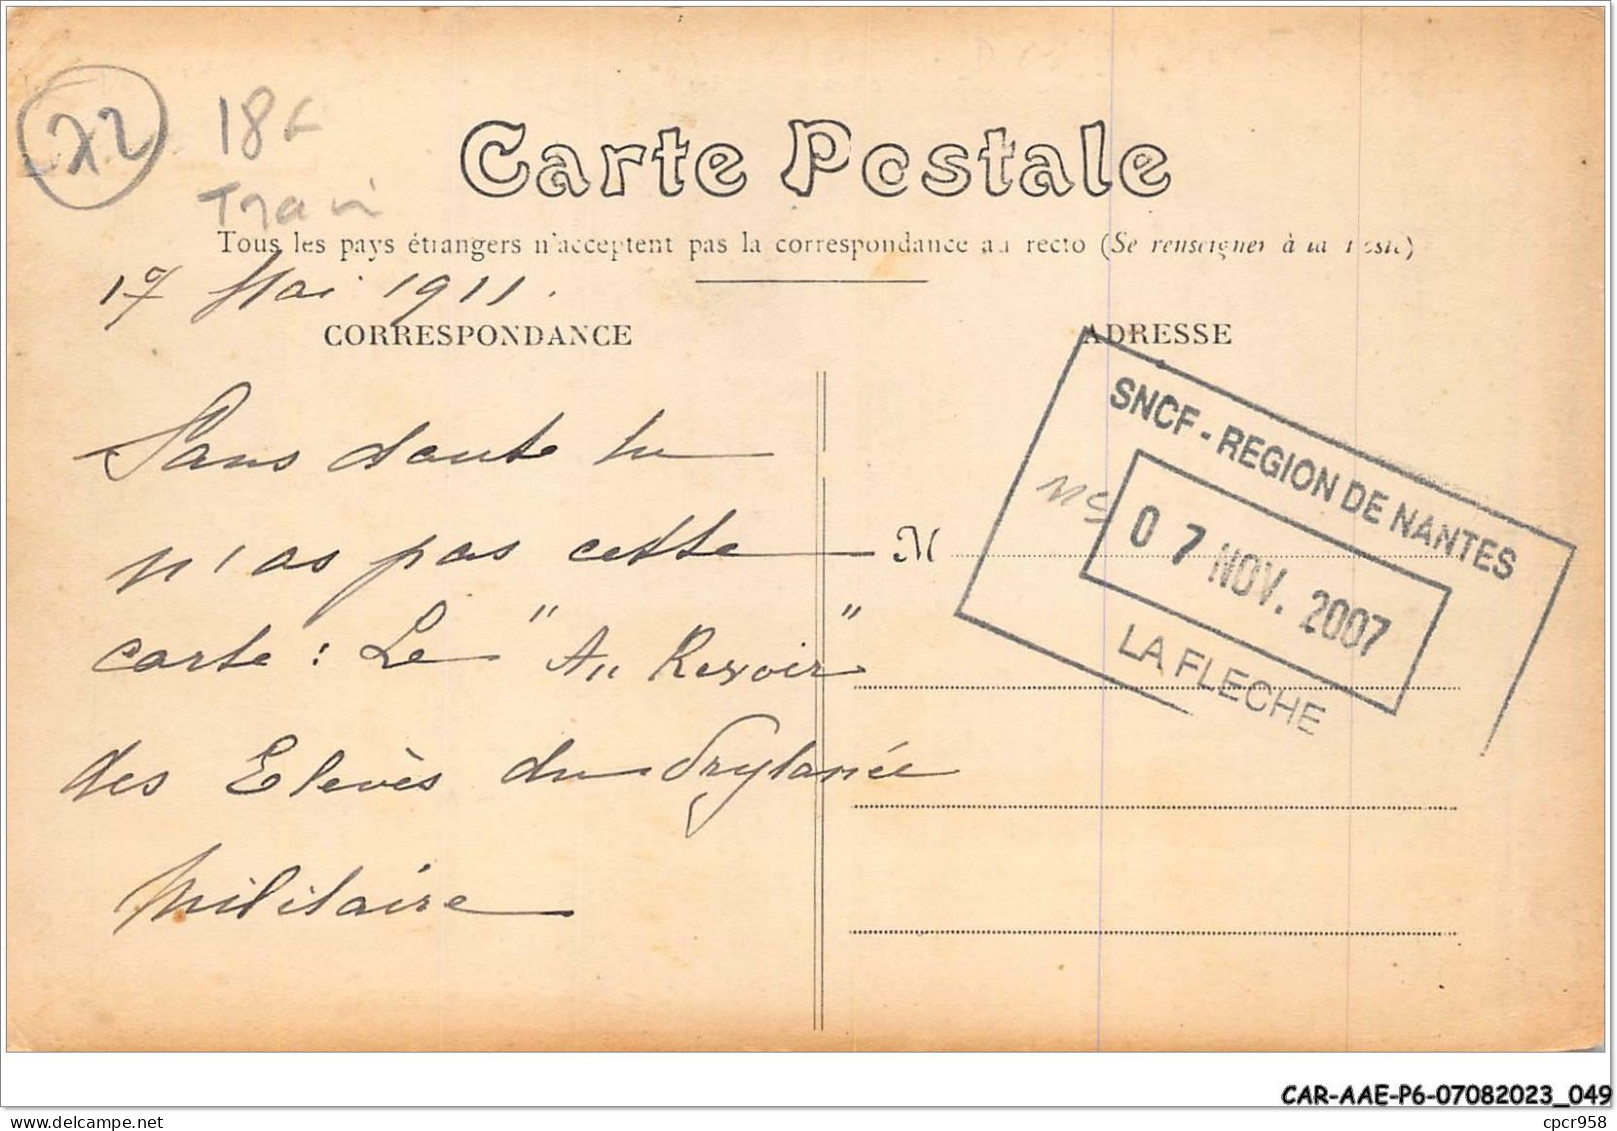 22
18F
Train
Carte Postale
Tous les pays étrangers n'acceptent pas la correspondance au recto (Se renseigner à la Poste)
17 Mai 1911.
CORRESPONDANCE
ADRESSE
Sans doute tu
n'as pas cette
carte : Le "Au Revoir"
des Elevès du Prytanée
Militaire
M
SNCF - REGION DE NANTES
07 NOV. 2007
LA FLECHE
CAR-AAE-P6-07082023_049
delcampe.net
cpcr958